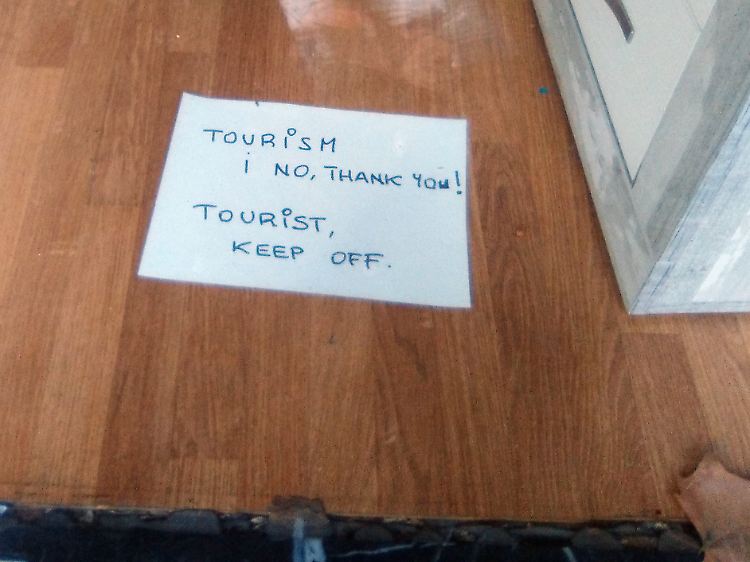 TOURiSM
¡ NO, THANK YOU!
TOURiST,
KEEP OFF.